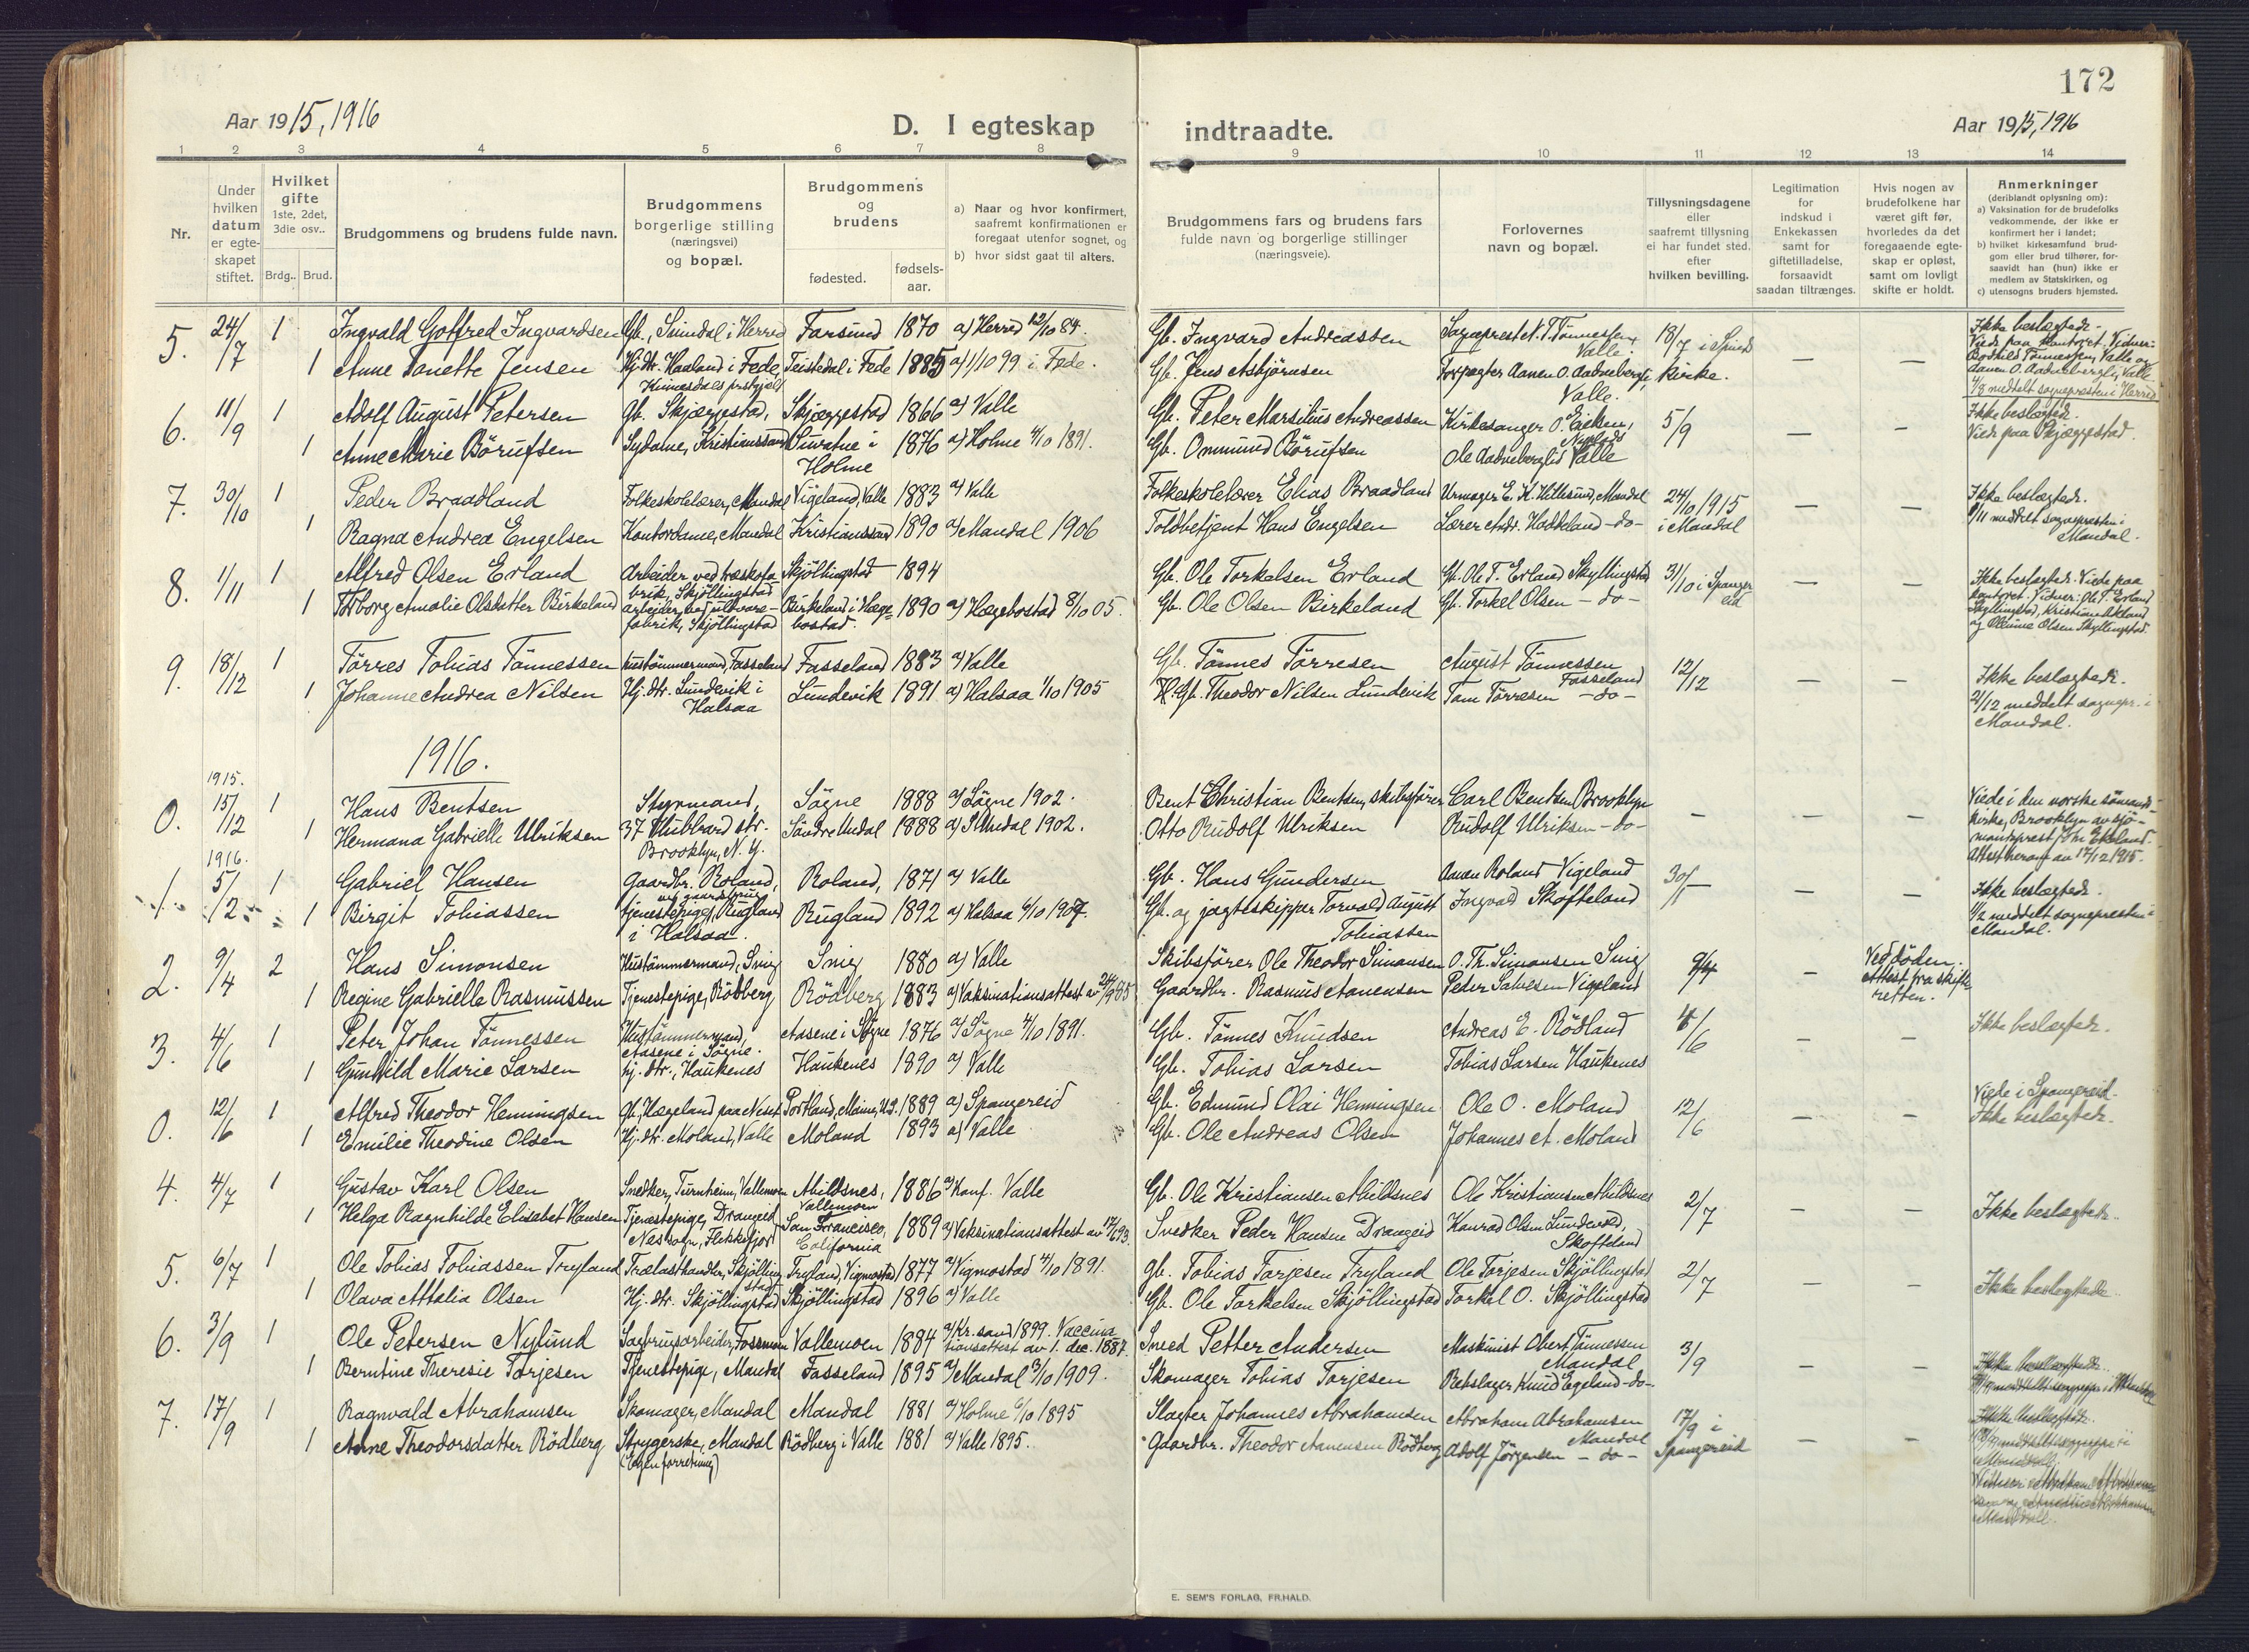 172
Aar 1915, 1916
D. I egteskap indtraadte.
Aar 1915, 1916
1 2 3 4 5 6 7 8 9 10 11 12 13 14
Nr.
Under hvilken datum er egteskapet stiftet.
Hvilket gifte 1ste, 2det, 3die osv..
Brdg.. Brud.
Brudgommens og brudens fulde navn.
Brudgommens borgerlige stilling (næringsvei) og bopæl.
Brudgommens og brudens
fødested.
fødselsaar.
a) Naar og hvor konfirmert, saafremt konfirmationen er foregaat utenfor sognet, og
b) hvor sidst gaat til alters.
Brudgommens fars og brudens fars fulde navn og borgerlige stillinger (næringsveie).
Forlovernes navn og bopæl.
Tillysningsdagene eller saafremt tillysning ei har fundet sted. efter hvilken bevilling.
Legitimation for indskud i Enkekassen samt for giftetilladelse, forsaavidt saadan tiltrænges.
Hvis nogen av brudefolkene har været gift før, hvorledes da det foregaaende egteskap er opløst, samt om lovligt skifte er holdt.
Anmerkninger (deriblandt oplysning om):
a) Vaksination for de brudefolks vedkommende, der ikke er konfirmert her i landet;
b) hvilket kirkesamfund brudgom eller brud tilhører, forsaavidt han (hun) ikke er medlem av Statskirken, og
c) utensogns bruders hjemsted.
5. 24/7 1 Ingvald Gotfred Ingvardsen Gb., Sundal i Herred Farsund 1870 a) Herred 12/10 84. Gb. Ingvard Andreassen Sogneprest N. T. Tönnessen, Valle. 18/7 i Spinds kirke. — — Ikke beslægtede. Viede paa kontoret. Vidner: Bodhild Tönnessen, Valle og Aanen O. Aadnebergli, Valle
1 Anne Tonette Jensen Hj. dtr. Haaland i Fede, Kvinesdals prstgjeld Teistedal i Fede 1885 a) 1/10 99 i Fede. Gb. Jens Asbjörnsen Forpagter Aanen O. Aadneberglii, Valle. 7/8 meddelt sognepresten i Herred
6. 11/9 1 Adolf August Petersen Gb. Skjæggestad, Skjæggestad 1866 a) Valle Gb. Peter Marsilius Andreassen Kirkesanger O. Eiken, Nyplads 5/9 — — Ikke beslægtede. Viede paa Skjæggestad.
1 Anne Marie Börufsen Sydame, Kristianssand Holme 1876 a) Holme 4/10 1891. Gb. Ommund Börufsen Ole Aadneberglid Valle
7. 30/10 1 Peder Braadland Folkeskolelærer, Mandal Vigeland, Valle 1883 a) Valle Folkeskolelærer Elias Braadland Urmager E. K. Hillesund, Mandal 24/10 1915 i Mandal — — Ikke beslægtede. 1/11 meddelt sognepresten i Mandal.
1 Ragna Andrea Engelsen Kontordame, Mandal Kristianssand 1890 a) Mandal 1906 Toldbetjent Hans Engelsen Lærer Andr. Haddeland -do-
8. 1/11 1 Alfred Olsen Erland Arbeider ved træskofabrik, Skjöllingstad Skjöllingstad 1894 Gb. Ole Torkelsen Erland Gb. Ole T. Erland Skyllingstad 31/10 i Spangereid — — Ikke beslægtede. Viede paa kontoret. Vidner: Ole T. Erland Skyllingstad, Kristiane Akland og Olleine Olsen Skyllingstad.
1 Torborg Amalie Olsdatter Birkeland arbeider ved uldvarefabrik, Skjöllingstad Birkeland i Hægebostad. 1890 a) Hægebostad 8/10 05. Gb. Ole Olsen Birkeland Gb. Torkel Olsen -do-
9. 18/12 1 Törres Tobias Tönnessen Hustömmermand, Fasseland Fasseland 1883 a) Valle Gb. Tönnes Törresen August Tönnessen Fasseland 12/12 — — Ikke beslægtede. 21/12 meddelt sognepr. i Mandal.
1 Johanne Andrea Nilsen Hj. dtr. Lundevik i Halsaa Lundevik 1891 a) Halsaa 1/10 1905 Gb. Theodor Nilsen Lundevik Tom Törresen -do-
1916.
1915.
0. 15/12 1 Hans Bentsen Styrmand, Sögne 1888 a) Sögne 1902. Bent Christian Bentsen, skibsförer Carl Bentsen Brooklyn — — Viede i den norske sömandskirke, Brooklyn av sjömandsprest Joh. Ekeland. Attest herom av 17/12 1915.
1 Hermana Gabrielle Ulriksen 37 Hubbard str. Brooklyn, N. Y. Söndre Undal 1888 a) S. Undal 1902. Otto Rudolf Ulriksen Rudolf Ulriksen -do-
1916.
1. 5/2 1 Gabriel Hansen Gaardbr. Roland, Roland, 1871 a) Valle Gb. Hans Gundersen Aanen Roland Vigeland 30/1 — — Ikke beslægtede. 9/2 meddelt sognepresten i Mandal.
1 Birgit Tobiassen tjenestepige, Rugland i Halsaa. Rugland 1892 a) Halsaa 6/10 1907. Gb. og jagtskipper Torvald August Tobiassen Ingvald Skofteland
2. 9/4 2 Hans Simonsen Hustömmermand, Snig Snig 1880 a) Valle Skibsförer Ole Theodor Simonsen O. Th. Simonsen Snig 9/4 — Ved döden. Attest fra skifteretten.
1 Regine Gabrielle Rasmussen Tjenestepige, Rödberg Rödberg 1883 a) Vaksinationsattest av 24/9 85 Gaardbr. Rasmus Aanensen Peder Salvesen Vigeland
3. 4/6 1 Peter Johan Tönnessen Hustömmermand, Aasene i Sögne. Aasene i Sögne 1876 a) Sögne 4/10 1891. Gb. Tönnes Knudsen Andreas E. Rödland 4/6 — — Ikke beslægtede.
1 Gunhild Marie Larsen hj. dtr., Haukenes Haukenes 1890 a) Valle Gb. Tobias Larsen Tobias Larsen Haukenes
0. 12/6 1 Alfred Theodor Hemingsen Gb, Hægeland paa Neset Portland, Maine, U.S. 1889 a) Spangereid Gb. Edmund Olai Henningsen Ole O. Moland 12/6 — — Viede i Spangereid. Ikke beslægtede.
1 Emilie Theodine Olsen Hj. dtr. Moland, Valle Moland 1893 a) Valle Gb. Ole Andreas Olsen Johannes A. Moland
4. 4/7 1 Gustav Karl Olsen Snedker, Turnheim, Vallemoen Abildsnes, Vallemoen 1886 a) Konf. Valle Gb. Ole Kristiansen Abildsnes Ole Kristiansen Abildsnes 2/7 — — Ikke beslægtede.
1 Helga Ragnhilde Elisabet Hansen Tjenestepige, Drangeid Nes sogn, Flekkefjord San Francisco, California 1889 a) Vaksinationsattest av 17/6 93. Snedker Peder Hansen Drangeid Konrad Olsen Lundevold, Skofteland
5. 6/7 1 Ole Tobias Tobiassen Tryland Trælasthandler, Skjöllingstad Tryland, Vigmostad 1877 a) Vigmostad 4/10 1891. gb. Tobias Tarjesen Tryland Ole Torjesen Skjöllingstad 2/7 — — Ikke beslægtede.
1 Olava Attalia Olsen Hj. dtr. Skjöllingstad Skjöllingstad 1896 a) Valle Gb. Ole Torkelsen Skjöllingstad Torkel O. Skjöllingstad
6. 3/9 1 Ole Petersen Nylund Sagbrugsarbeider, Fossmoen Vallemoen 1884 a) Kr.sand 1899. Vaccinationsattest av 1. dec. 1887. Smed Petter Andersen Maskinist Obert Tönnessen Mandal 3/9 — — Ikke beslægtede.
1 Berntine Theresie Torjesen Tjenestepige, Mandal Fasseland 1895 a) Mandal 3/10 1909. Skomager Tobias Torjesen Rebslager Knud Egeland -do-
7. 17/9 1 Ragnvald Abrahamsen Skomager, Mandal Mandal 1881 a) Holme 6/10 1895 Slagter Johannes Abrahamsen Abraham Abrahamsen Mandal 17/9 i Spangereid — — Ikke beslægtede.
1 Anne Theodorsdatter Rödberg Strygerske, Mandal (Egen forretning) Rödberg i Valle 1881 a) Valle 1895. Gaardbr. Theodor Aanensen Rödberg Adolf Jörgensen -do-
E. SEM'S FORLAG, FR.HALD.